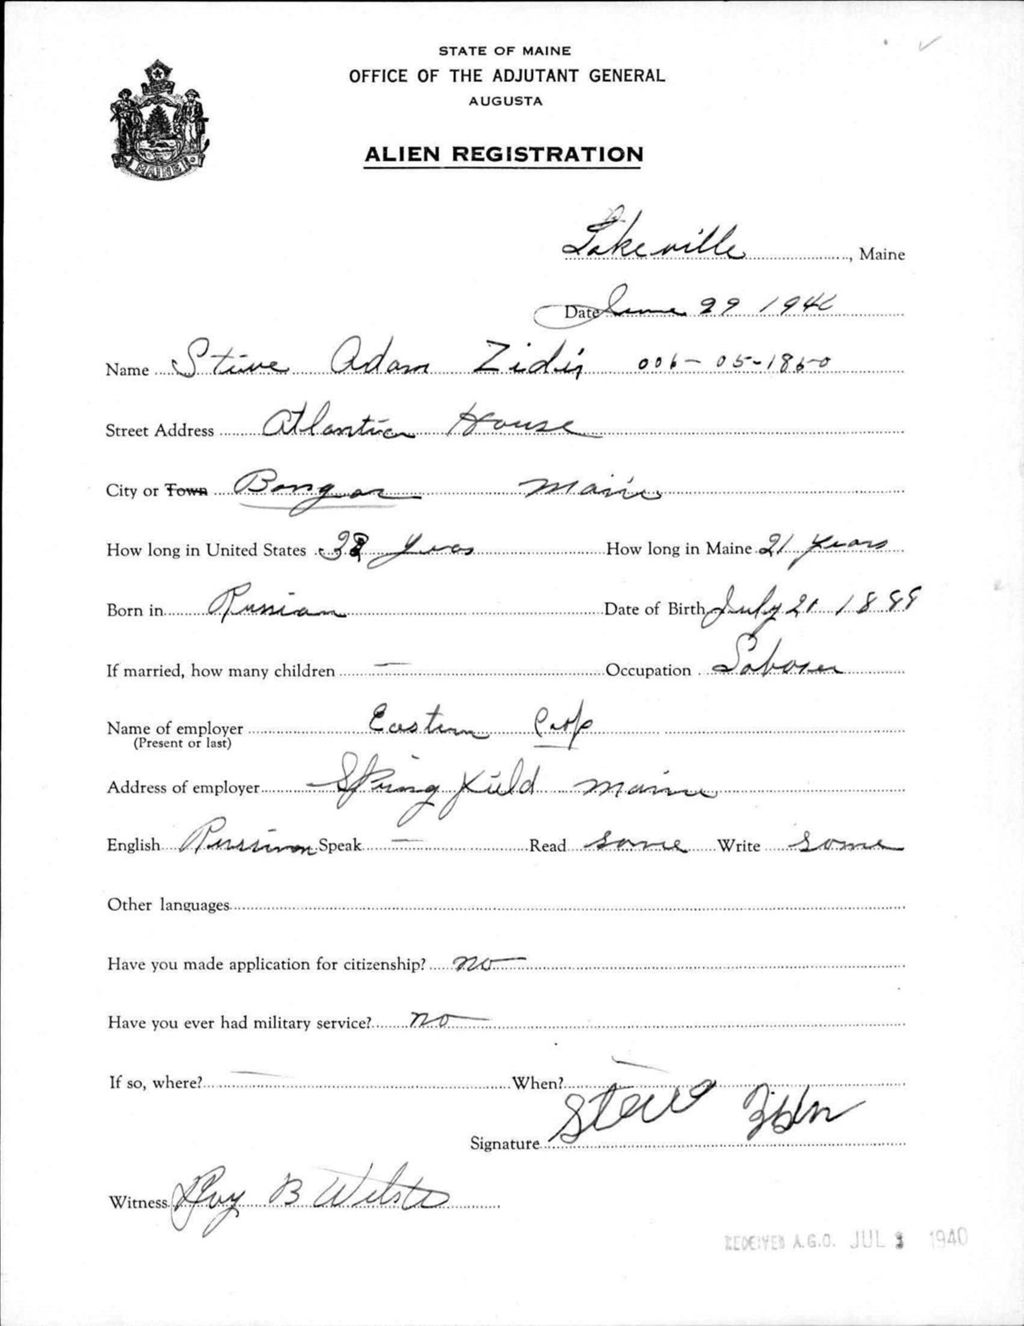 STATE OF MAINE
OFFICE OF THE ADJUTANT GENERAL
AUGUSTA
MAINE
ALIEN REGISTRATION
Lakeville, Maine
Date June 29 1940
Name Steve Adam Zidin 006-05-1850
Street Address Atlantica House
City or Town Bangor Maine
How long in United States years How long in Maine 21 years
Born in Russian Date of Birth July 21 1888
If married, how many children — Occupation Laborer
Name of employer Eastern Corp
(Present or last)
Address of employer Springfield Maine
English Russian Speak — Read some Write some
Other languages
Have you made application for citizenship? no
Have you ever had military service? no
If so, where? — When? —
Signature Steve
Witness Roy B Webster
RECEIVED A.G.O. JUL 1940